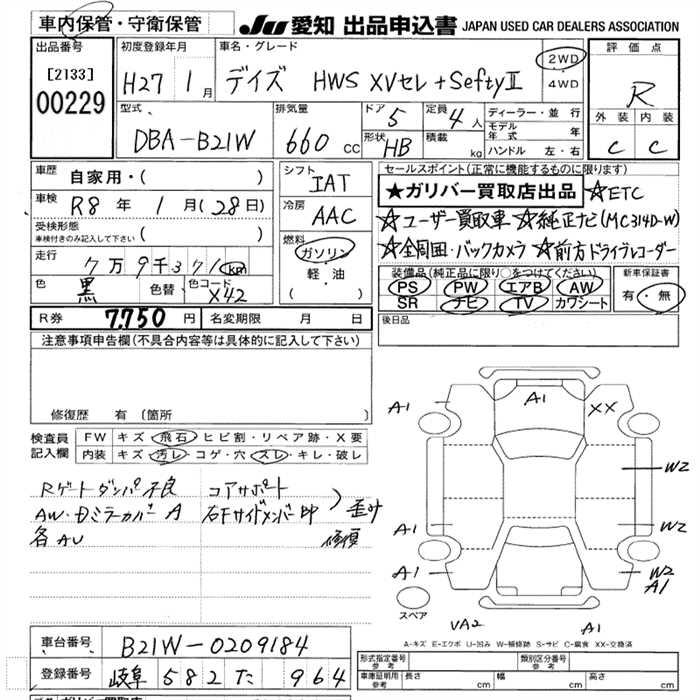 車内保管・守衛保管
JU 愛知 出品申込書 JAPAN USED CAR DEALERS ASSOCIATION
出品番号 [2133] 00229
初度登録年月 H27 1月
車名・グレード デイズ HWS XVセレ+SeftyⅡ
2WD
4WD
評価点 R
外装 内装
C C
型式 DBA-B21W
排気量 660 cc
ドア 5
形状 HB
定員 4人
積載 kg
ディーラー・並行
モデル年式 年
ハンドル 左・右
車歴 自家用・( )
車検 R8年 1月(28日)
受検形態
車検付きのみ記入して下さい ( )
走行 7万9千371 km
色 黒 色替 色コード X42
シフト IAT
冷房 AAC
燃料 ガソリン
軽・油
( )
セールスポイント(正常に機能するものに限ります)
★ガリバー買取店出品 ☆ETC
☆ユーザー買取車 ☆純正ナビ(MC314D-W)
☆全周囲・バックカメラ ☆前方ドライブレコーダー
装備品(純正品に限り○をつけてください)
PS PW エアB AW
SR ナビ TV カワシート
新車保証書
有・無
R券 7,750円 名変期限 月 日
後日品
注意事項申告欄(不具合内容等は具体的に記入して下さい)
修復歴 有(箇所 )
検査員記入欄
FW キズ・飛石・ヒビ割・リペア跡・X要
内装 キズ・汚レ・コゲ・穴・スレ・キレ・破レ
Rゲートダンパ不良 コアサポート
AW・Dミラーカバー A 右Fサイドメンバー 歪み
各AU 修復
A1
A1
XX
W2
A1
W2
A1
W2
A1
スペア
VA2
A1
A-キズ E-エクボ U-凹み W-補修跡 S-サビ C-腐食 XX-交換済
車台番号 B21W-0209184
登録番号 岐阜 582 た 964
形式指定番号 参考
類別区分番号 参考
車庫証明用 参考 長さ cm 幅 cm 高さ cm